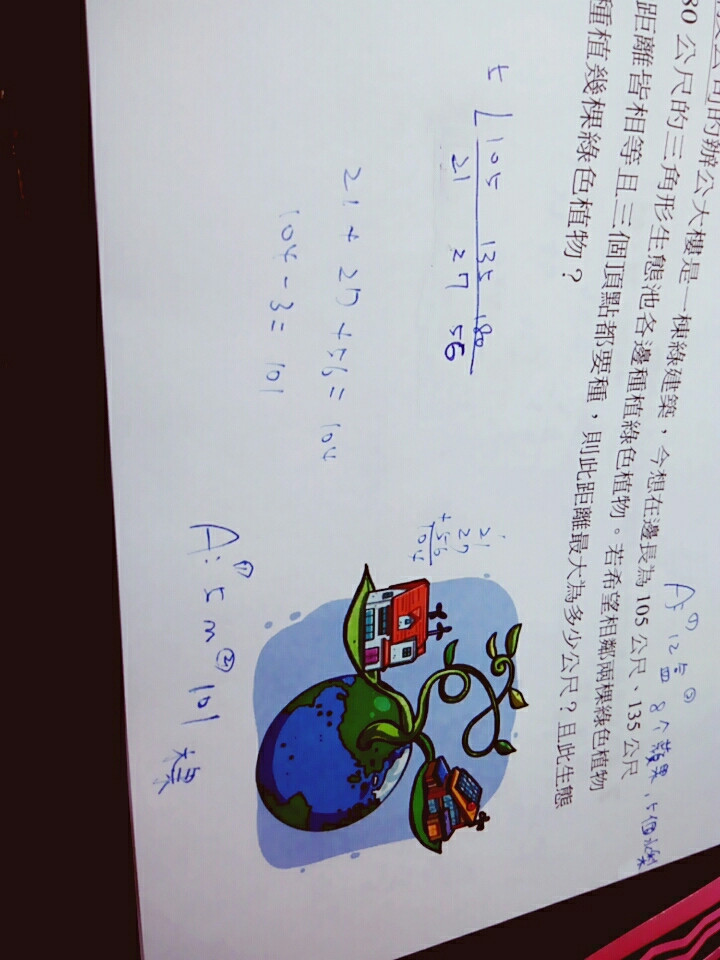 的辦公大樓是一棟綠建築,今想在邊長為 105 公尺、135 公尺
80 公尺的三角形生態池各邊種植綠色植物。若希望相鄰兩棵綠色植物
距離皆相等且三個頂點都要種,則此距離最大為多少公尺?且此生態
種植幾棵綠色植物?
A:① 12 ② 8個蘋果,5個
5 105 135 180
21 27 56
21 + 27 + 56 = 104
104 - 3 = 101
21
27
+ 56
104
A:① 5 m ② 101 棵